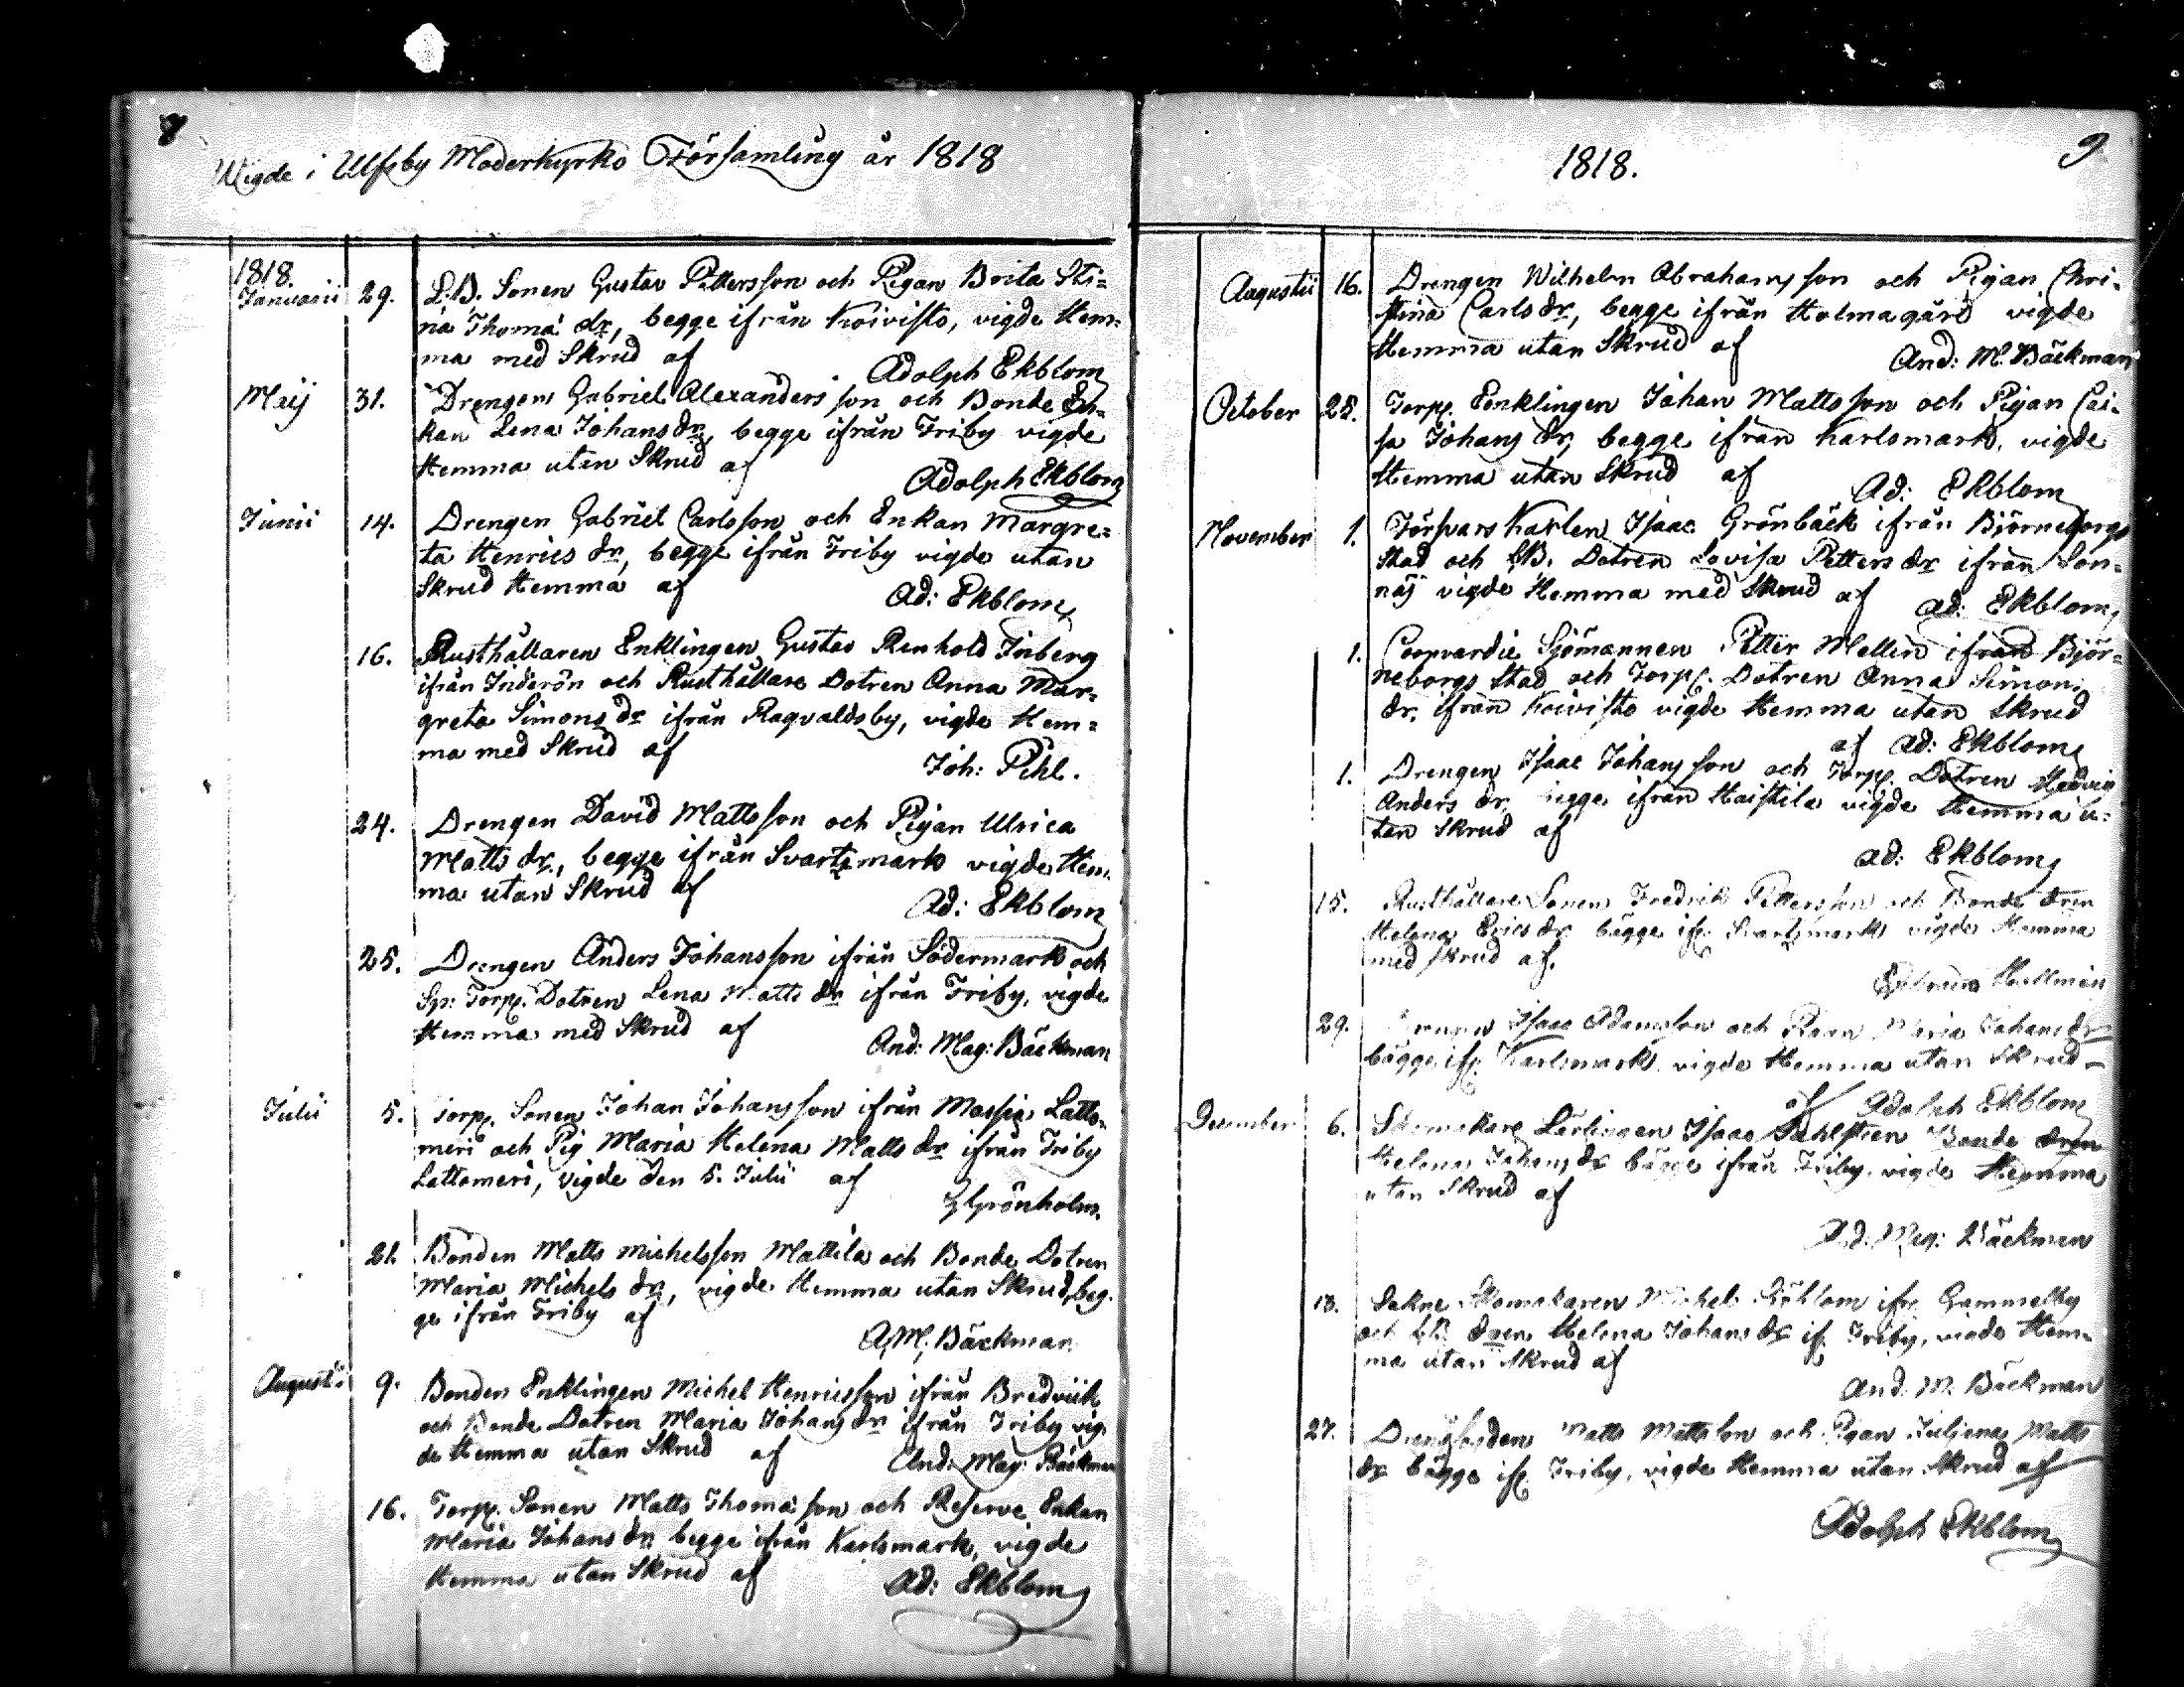 8
Wigde i Ulfsby Moderkyrko Församling år 1818
1818.
Januarii 29. L.B. Sonen Gustav Pettersson och Pigan Brita Sti=
na Thomæ dr, begge ifrån Koivisto, vigde Hem=
ma med Skrud af
Adolph Ekblom
Maij 31. Drengen Gabriel Alexandersson och Bonde En=
kan Lena Johans dr, begge ifrån Friby vigde
Hemma utan Skrud af
Adolph Ekblom
Junii 14. Drengen Gabriel Carlsson och Enkan Margre=
ta Henrics dr, begge ifrån Friby vigde utan
Skrud Hemma af
Ad: Ekblom
16. Rusthållaren Enklingen Gustav Renhold Inberg
ifrån Inderön och Rusthållare Dotren Anna Mar=
greta Simons dr ifrån Ragvaldsby, vigde Hem=
ma med Skrud af
Joh: Pihl.
24. Drengen David Mattsson och Pigan Ulrica
Matts dr, begge ifrån Svartsmark vigde Hem=
ma utan Skrud af
Ad: Ekblom
25. Drengen Anders Johansson ifrån Södermark och
Sp: Torp. Dotren Lena Matts dr ifrån Friby, vigde
Hemma med Skrud af
And: Mag: Bäckman
Julii 5. Torp. Sonen Johan Johansson ifrån Massia Latto=
meri och Pig Maria Helena Matts dr ifrån Friby
Lattomeri, vigde den 5. Julii af
Grönholm.
21. Bonden Matts Michelsson Mattila och Bonde Dotren
Maria Michels dr, vigde Hemma utan Skrud, beg=
ge ifrån Friby af
A. M. Bäckman
Augusti 9. Bonden Enklingen Michel Henricsson ifrån Bredviik
och Bonde Dotren Maria Johans dr ifrån Friby vig=
de Hemma utan Skrud af
And: Mag: Bäckman
16. Torp. Sonen Matts Thomasson och Reserve Enkan
Maria Johans dr begge ifrån Karlsmark, vigde
Hemma utan Skrud af
Ad: Ekblom
9
1818.
Augustii 16. Drengen Wilhelm Abrahamsson och Pigan Chri=
stina Carls dr, begge ifrån Holmagård vigde
Hemma utan Skrud af
And: M. Bäckman
October 25. Torp. Eenklingen Johan Mattsson och Pigan Cai=
sa Johans dr, begge ifrån Karlsmark, vigde
Hemma utan Skrud af
Ad: Ekblom
November 1. Försvars Karlen Isaac Grönbäck ifrån Björneborgs
Stad och LB. Dotren Lovisa Petters dr ifrån Son=
näs vigde Hemma med Skrud af
Ad: Ekblom
1. Coopvardie Sjömannen Petter Mellin ifrån Björ=
neborgs Stad och Torp. Dotren Anna Simons
dr. ifrån Koivisto vigde Hemma utan Skrud
af Ad: Ekblom
1. Drengen Isaac Johansson och Torp. Dotren Hedvig
Anders dr. begge ifrån Haistila vigde Hemma u=
tan Skrud af
Ad: Ekblom
15. Rusthållare Sonen Fredrik Pettersson och Bonde dren
Helena Erics dr bägge ifr. Svartsmark vigde Hemma
med skrud af.
Hallmén
29. Drengen Isaac Adamsson och Pigan Maria Johans dr
bägge ifr. Karlsmark vigde Hemma utan Skrud
af Adolph Ekblom
December 6. Skomakare Lärlingen Isaac Bonde dren
Helena Johans dr bägge ifrån Friby. vigde Hemma
utan Skrud af
And: Mag: Bäckman
13. Sokne Skomakaren Michel ifr. Gammelby
och LB. dren Helena Johans dr if. Friby, vigde Hem=
ma utan Skrud af
And. M. Bäckman
27. Drengfogden Matts Mattsson och Pigan Juliana Matts
dr bägge ifr. Friby, vigde Hemma utan Skrud af
Adolph Ekblom